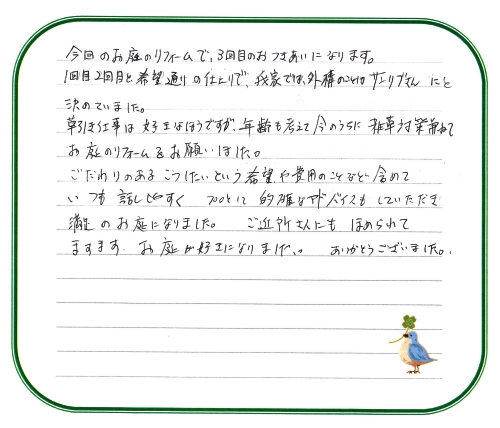 今回のお庭のリフォームで、3回目のおつきあいになります。
1回目2回目と希望通りの仕上りで、我家では、外構のことは ザ・エリブさん にと
決めていました。
草引き仕事は 好きなほうですが、年齢も考えて 今のうちに 雑草対策兼ねて
お庭のリフォームをお願いしました。
こだわりのある こうしたいという希望や費用のことなど 含めて
いつも 話しやすく プロとして 的確なアドバイスも していただき
満足 のお庭になりました。 ご近所さんにも ほめられて
ますます お庭が好きになりました。 ありがとうございました。